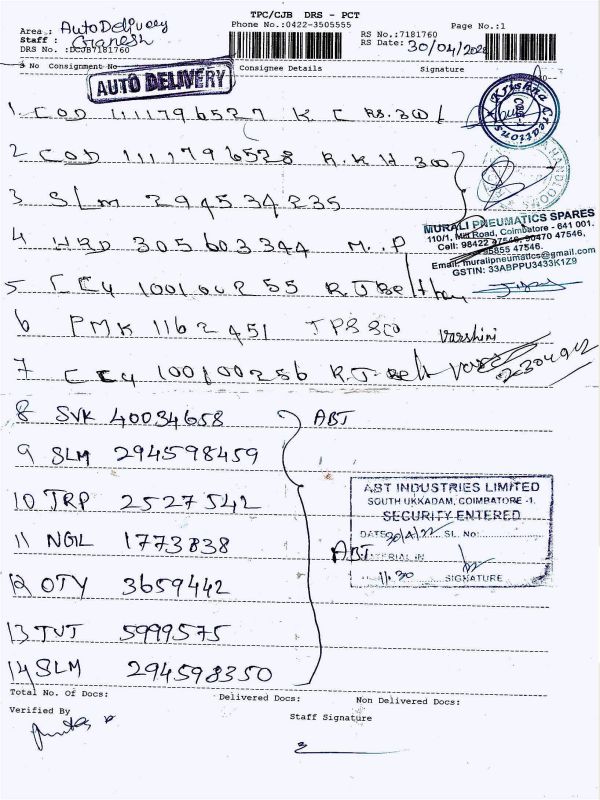 TPC/CJB DRS - PCT
Area : AutoDelivery
Phone No.:0422-3505555
Page No.:1
Staff : Ganesh
RS No.:7181760
DRS No. :DCJB7181760
RS Date: 30/04/202
S No Consignment No
Consignee Details
Signature
AUTO DELIVERY
1 COD 1111796527 K C Rs.300/
Krishna Creations
2 COD 1111796528 R.K.H 300
HANDLOOMS
3 SLM 294534235
MURALI PNEUMATICS SPARES
110/1, Mill Road, Coimbatore - 641 001.
Cell: 98422 97546, 90470 47546,
95855 47546.
4 HRD 305603344 M..P
Email: muralipneumatics@gmail.com
GSTIN: 33ABPPU3433K1Z9
5 CC4 100100255 R.J Belt
6 PMK 1162451 TPS
Varshini
7 CC4 100100256 R.J Belt
8 SVK 40034658 ABT
9 SLM 294598459
ABT INDUSTRIES LIMITED
SOUTH UKKADAM, COIMBATORE -1.
10 TRP 2527542
SECURITY ENTERED
DATE 30/4/22 SL. No:
11 NGL 1773838
ABT
MATERIAL IN
11.30 SIGNATURE
12 OTY 3659442
13 TUT 5999575
14 SLM 294598350
Total No. of Docs:
Delivered Docs:
Non Delivered Docs:
Verified By
Staff Signature